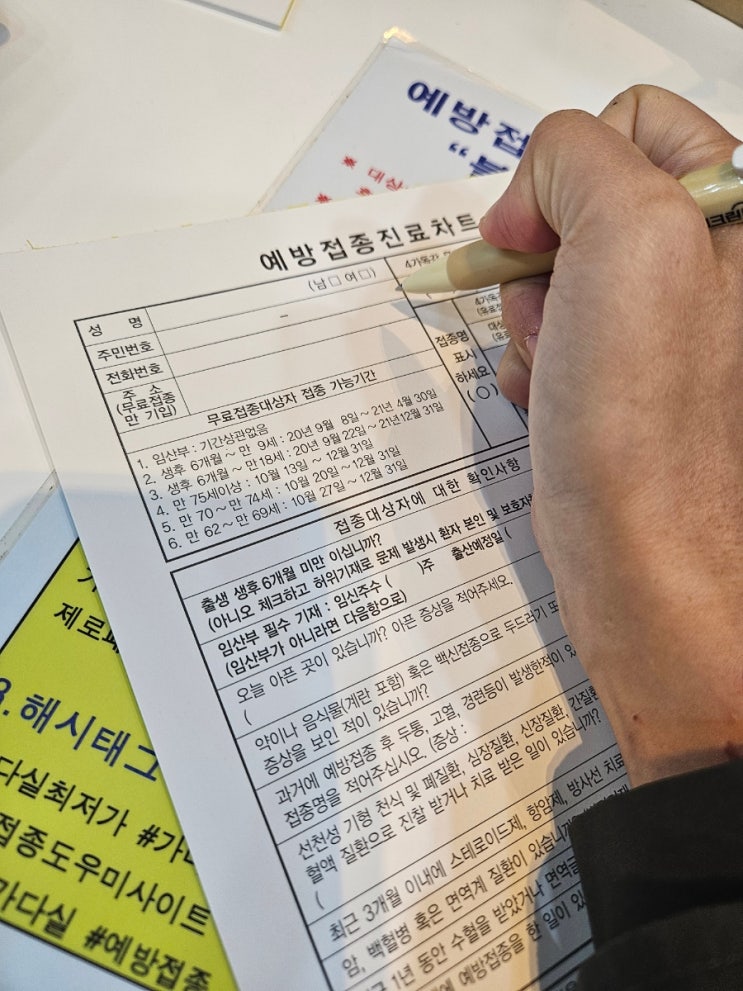 예방접
“
※ 대상
예방접종진료차트
(남□ 여□)
4가독감
성 명
-
주민번호
전화번호
주 소
(무료접종
만 기입)
접종명
표시
하세요
(○)
4가독감
무료접종대상자 접종 가능기간
1. 임산부 : 기간상관없음
2. 생후 6개월 ~ 만 9세 : 20년 9월 8일 ~ 21년 4월 30일
3. 생후 6개월 ~ 만18세 : 20년 9월 22일 ~ 21년12월 31일
4. 만 75세이상 : 10월 13일 ~ 12월 31일
5. 만 70 ~ 만 74세 : 10월 20일 ~ 12월 31일
6. 만 62 ~ 만 69세 : 10월 27일 ~ 12월 31일
접종대상자에 대한 확인사항
출생 생후 6개월 미만 이십니까?
(아니오 체크하고 허위기재로 문제 발생시 환자 본인 및 보호자
임산부 필수 기재 : 임신주수 ( )주 출산예정일 (
(임산부가 아니라면 다음항으로)
오늘 아픈 곳이 있습니까? 아픈 증상을 적어주세요.
(
약이나 음식물(계란 포함) 혹은 백신접종으로 두드러기 또
증상을 보인 적이 있습니까?
과거에 예방접종 후 두통, 고열, 경련등이 발생한적이 있
접종명을 적어주십시오. (증상 :
선천성 기형 천식 및 폐질환, 심장질환, 신장질환, 간질환
혈액 질환으로 진찰 받거나 치료 받은 일이 있습니까?
(
최근 3개월 이내에 스테로이드제, 항암제, 방사선 치료
암, 백혈병 혹은 면역계 질환이 있습니까
근 1년 동안 수혈을 받았거나 면역글
에 예방접종을 한 일이 있
제로페
3. 해시태그
다실최저가 #가다
접종도우미사이트
가다실 #예방접종